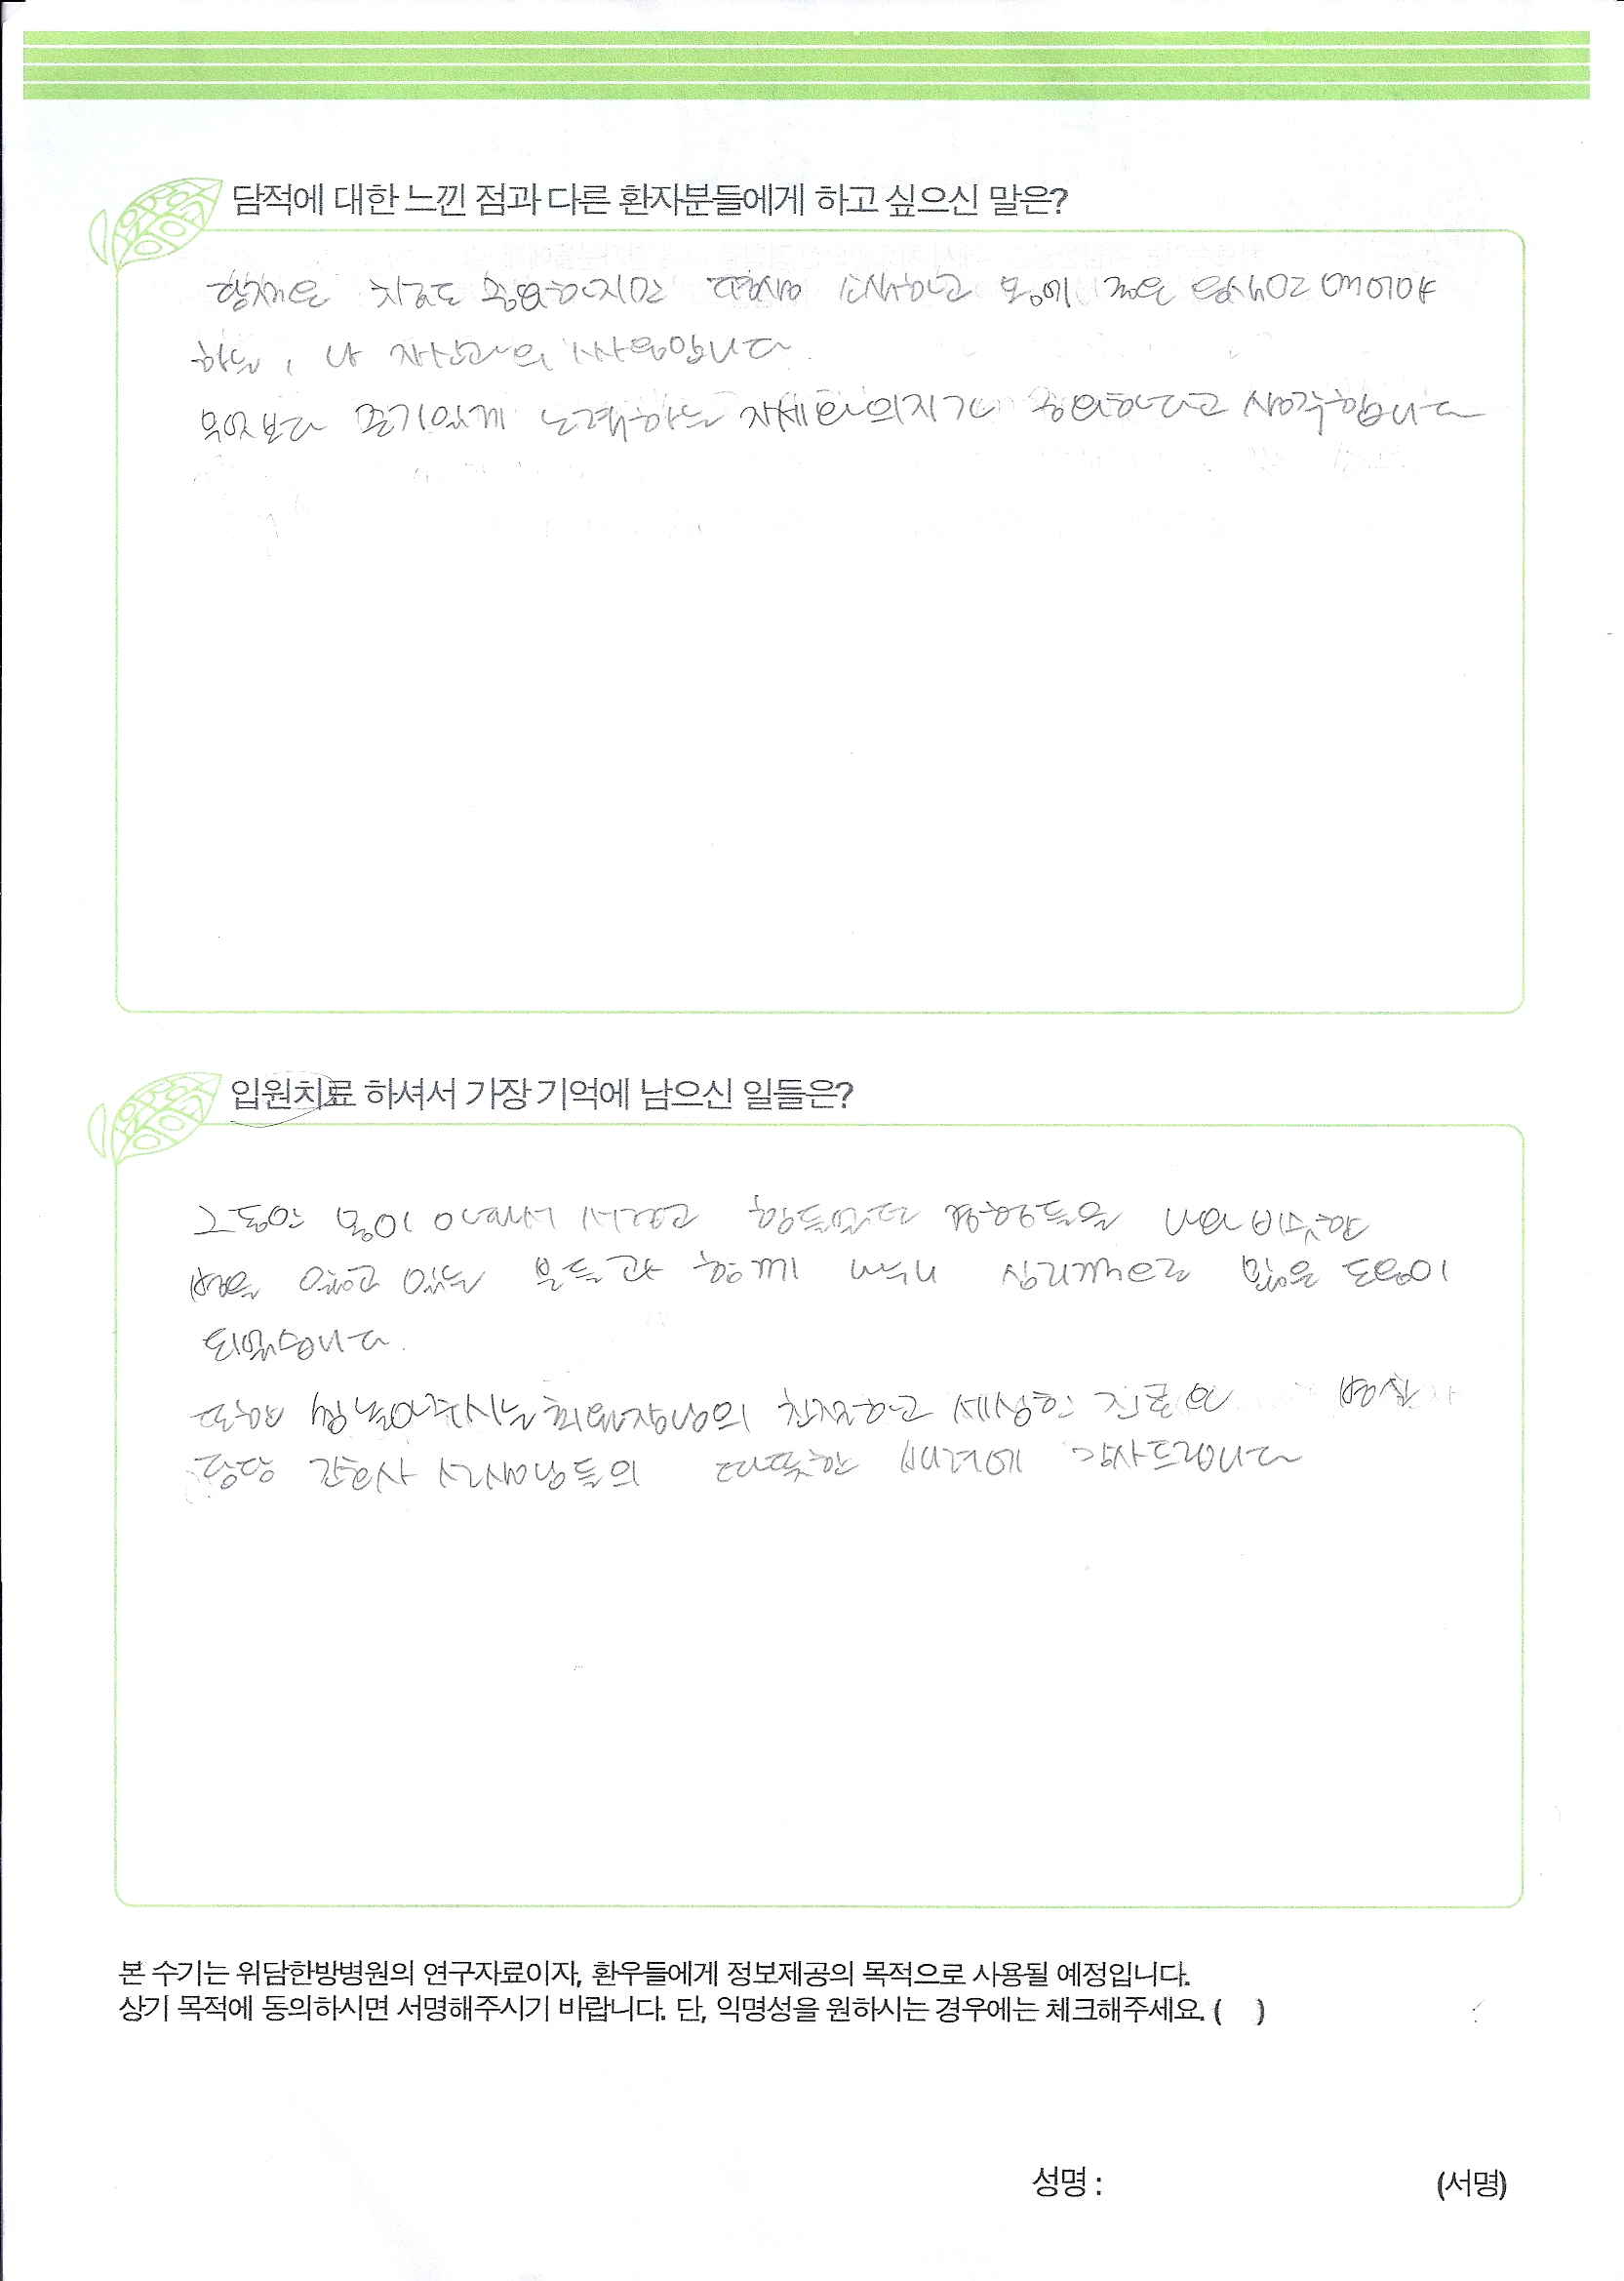 담적에 대한 느낀 점과 다른 환자분들에게 하고 싶으신 말은?
담적은 치료도 중요하지만 평생 조심하고 몸에 좋은 음식만 먹어야
하는, 나 자신과의 싸움입니다.
무엇보다 끈기있게 노력하는 자세와 의지가 중요하다고 생각합니다
입원치료 하셔서 가장 기억에 남으신 일들은?
그동안 몸이 아파서 힘들었던 경험들을 나와 비슷한
병을 앓고 있는 분들과 함께 나눠 심리적으로 많은 도움이
되었습니다.
또한 원장님의 친절하고 세심한 진료와 병실
담당 간호사 선생님들의 따뜻한 배려에 감사드립니다
본 수기는 위담한방병원의 연구자료이자, 환우들에게 정보제공의 목적으로 사용될 예정입니다.
상기 목적에 동의하시면 서명해주시기 바랍니다. 단, 익명성을 원하시는 경우에는 체크해주세요. ( )
성명 : (서명)